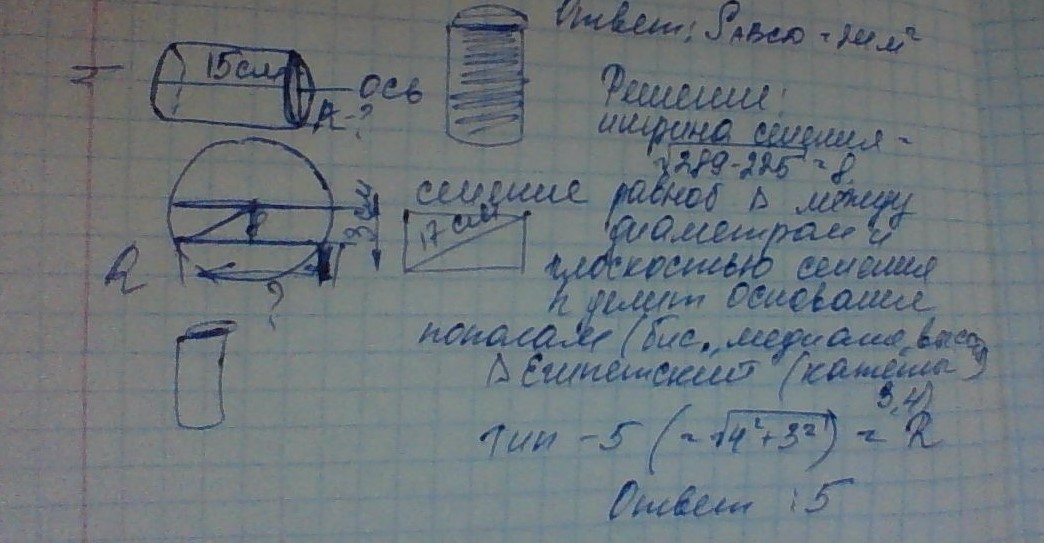 Ответ: SABCD = 24 м²
15 см
ось
R-?
Решение:
ширина сечения =
√289-225 = 8
сечение
17 см
3 см
R
?
равноб Δ между
диаметром и
плоскостью сечения
h делит основание
пополам (бис., медиана, высо
Δ Египетский (катеты
3,4)
гип - 5 (= √4²+3²) = R
Ответ : 5